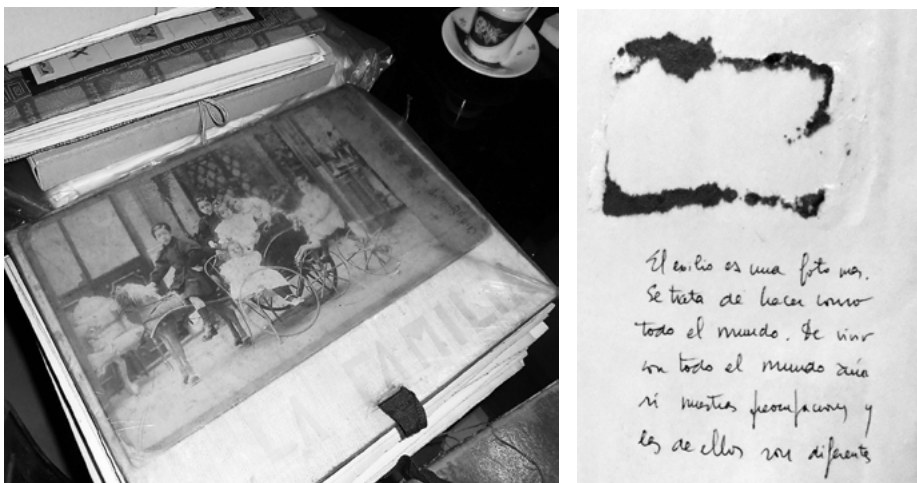 LA FAMILIA
El exilio es una foto mas.
Se trata de hacer como
todo el mundo. De vivir
con todo el mundo aún
si nuestras preocupaciones y
las de ellos son diferentes